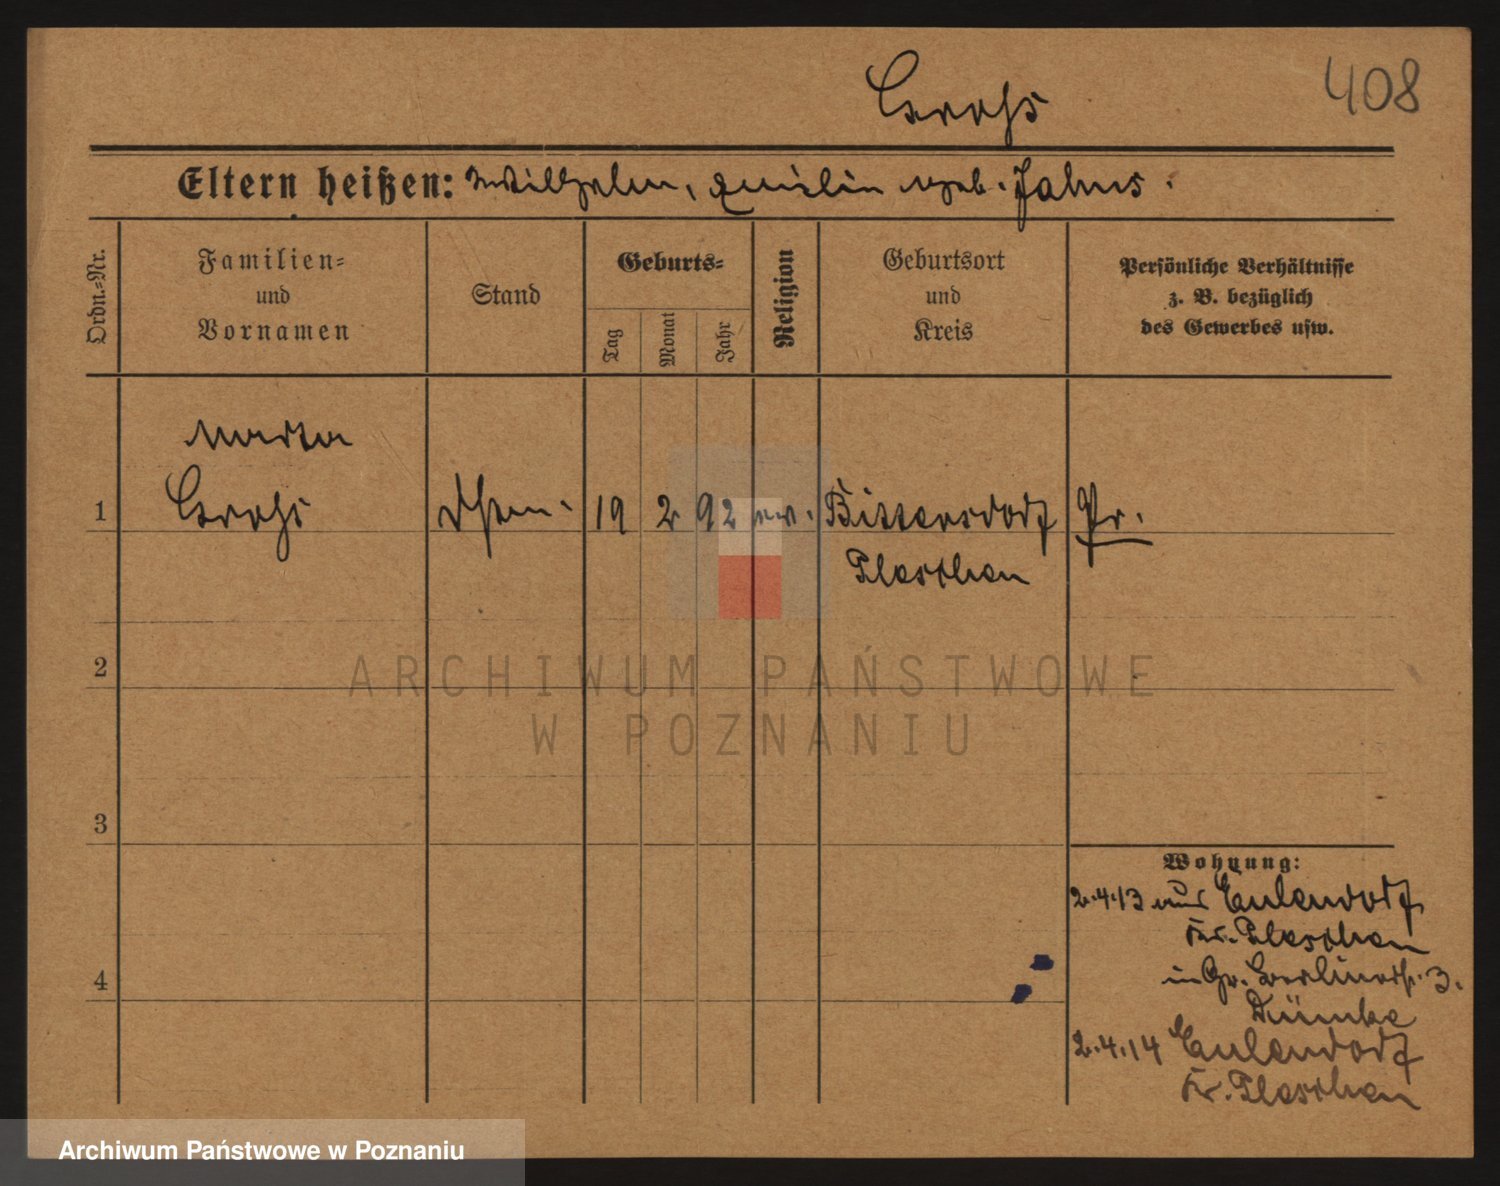 408
Eltern heißen: Wilhelm, geb. Jahns.
Ordn.-Nr.
Familien-
und
Vornamen
Stand
Geburts-
Tag
Monat
Jahr
Religion
Geburtsort
und
Kreis
Persönliche Verhältnisse
z. B. bezüglich
des Gewerbes usw.
Marta
1
19 2 92 ev. Bittersdorf Pr.
Pleschen
2
3
4
Wohnung:
2.4.13 aus Eulendorf
Kr. Pleschen
in Gr. Berlinerstr. 3.
Dümke
2.4.14 Eulendorf
Kr. Pleschen
ARCHIWUM PAŃSTWOWE
W POZNANIU
Archiwum Państwowe w Poznaniu